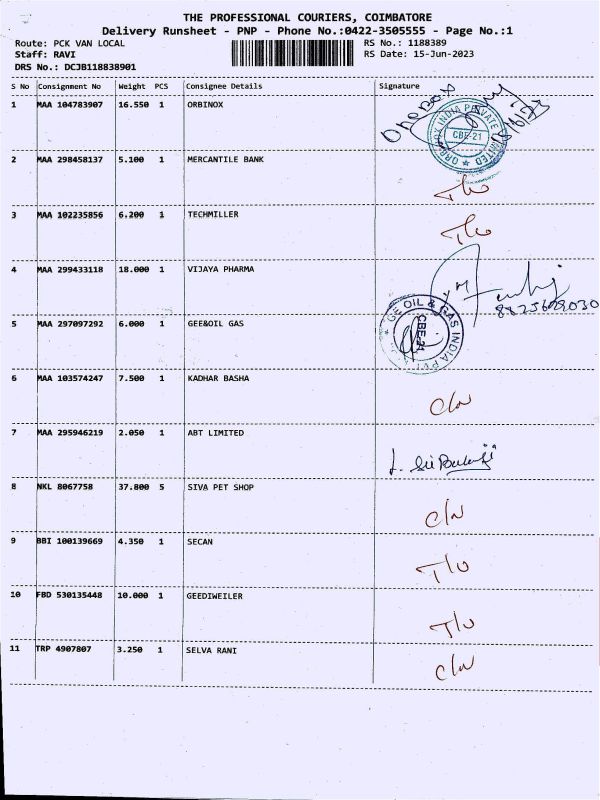 THE PROFESSIONAL COURIERS, COIMBATORE
Delivery Runsheet - PNP - Phone No.:0422-3505555 - Page No.:1
Route: PCK VAN LOCAL RS No.: 1188389
Staff: RAVI RS Date: 15-Jun-2023
DRS No.: DCJB118838901
S No Consignment No Weight PCS Consignee Details Signature
1 MAA 104783907 16.550 1 ORBINOX
ORBINOX INDIA PRIVATE LIMITED
CBE-21
2 MAA 298458137 5.100 1 MERCANTILE BANK
T/U
3 MAA 102235856 6.200 1 TECHMILLER
T/U
4 MAA 299433118 18.000 1 VIJAYA PHARMA
5 MAA 297097292 6.000 1 GEE&OIL GAS
GEE OIL & GAS INDIA PVT
CBE-21
6 MAA 103574247 7.500 1 KADHAR BASHA
C/N
7 MAA 295946219 2.050 1 ABT LIMITED
8 NKL 8067758 37.800 5 SIVA PET SHOP
C/N
9 BBI 100139669 4.350 1 SECAN
T/U
10 FBD 530135448 10.000 1 GEEDIWEILER
T/U
11 TRP 4907807 3.250 1 SELVA RANI
C/N